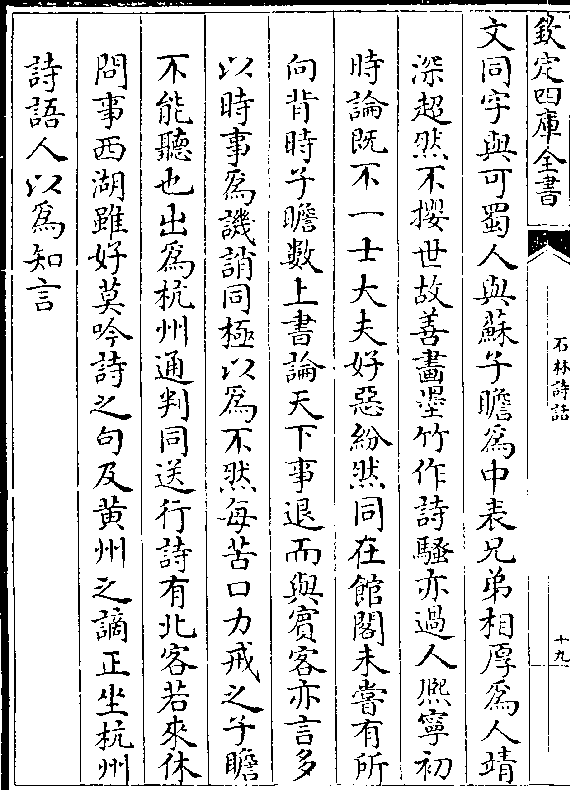 欽定四庫全書
石林詩話
十九
文同字與可蜀人與蘇子瞻爲中表兄弟相厚爲人靖
深超然不攖世故善畫墨竹作詩騷亦過人熙寧初
時論既不一士大夫好惡紛然同在館閣未嘗有所
向背時子瞻數上書論天下事退而與賓客亦言多
以時事爲譏誚同極以爲不然每苦口力戒之子瞻
不能聽也出爲杭州通判同送行詩有北客若來休
問事西湖雖好莫吟詩之句及黄州之謫正坐杭州
詩語人以爲知言